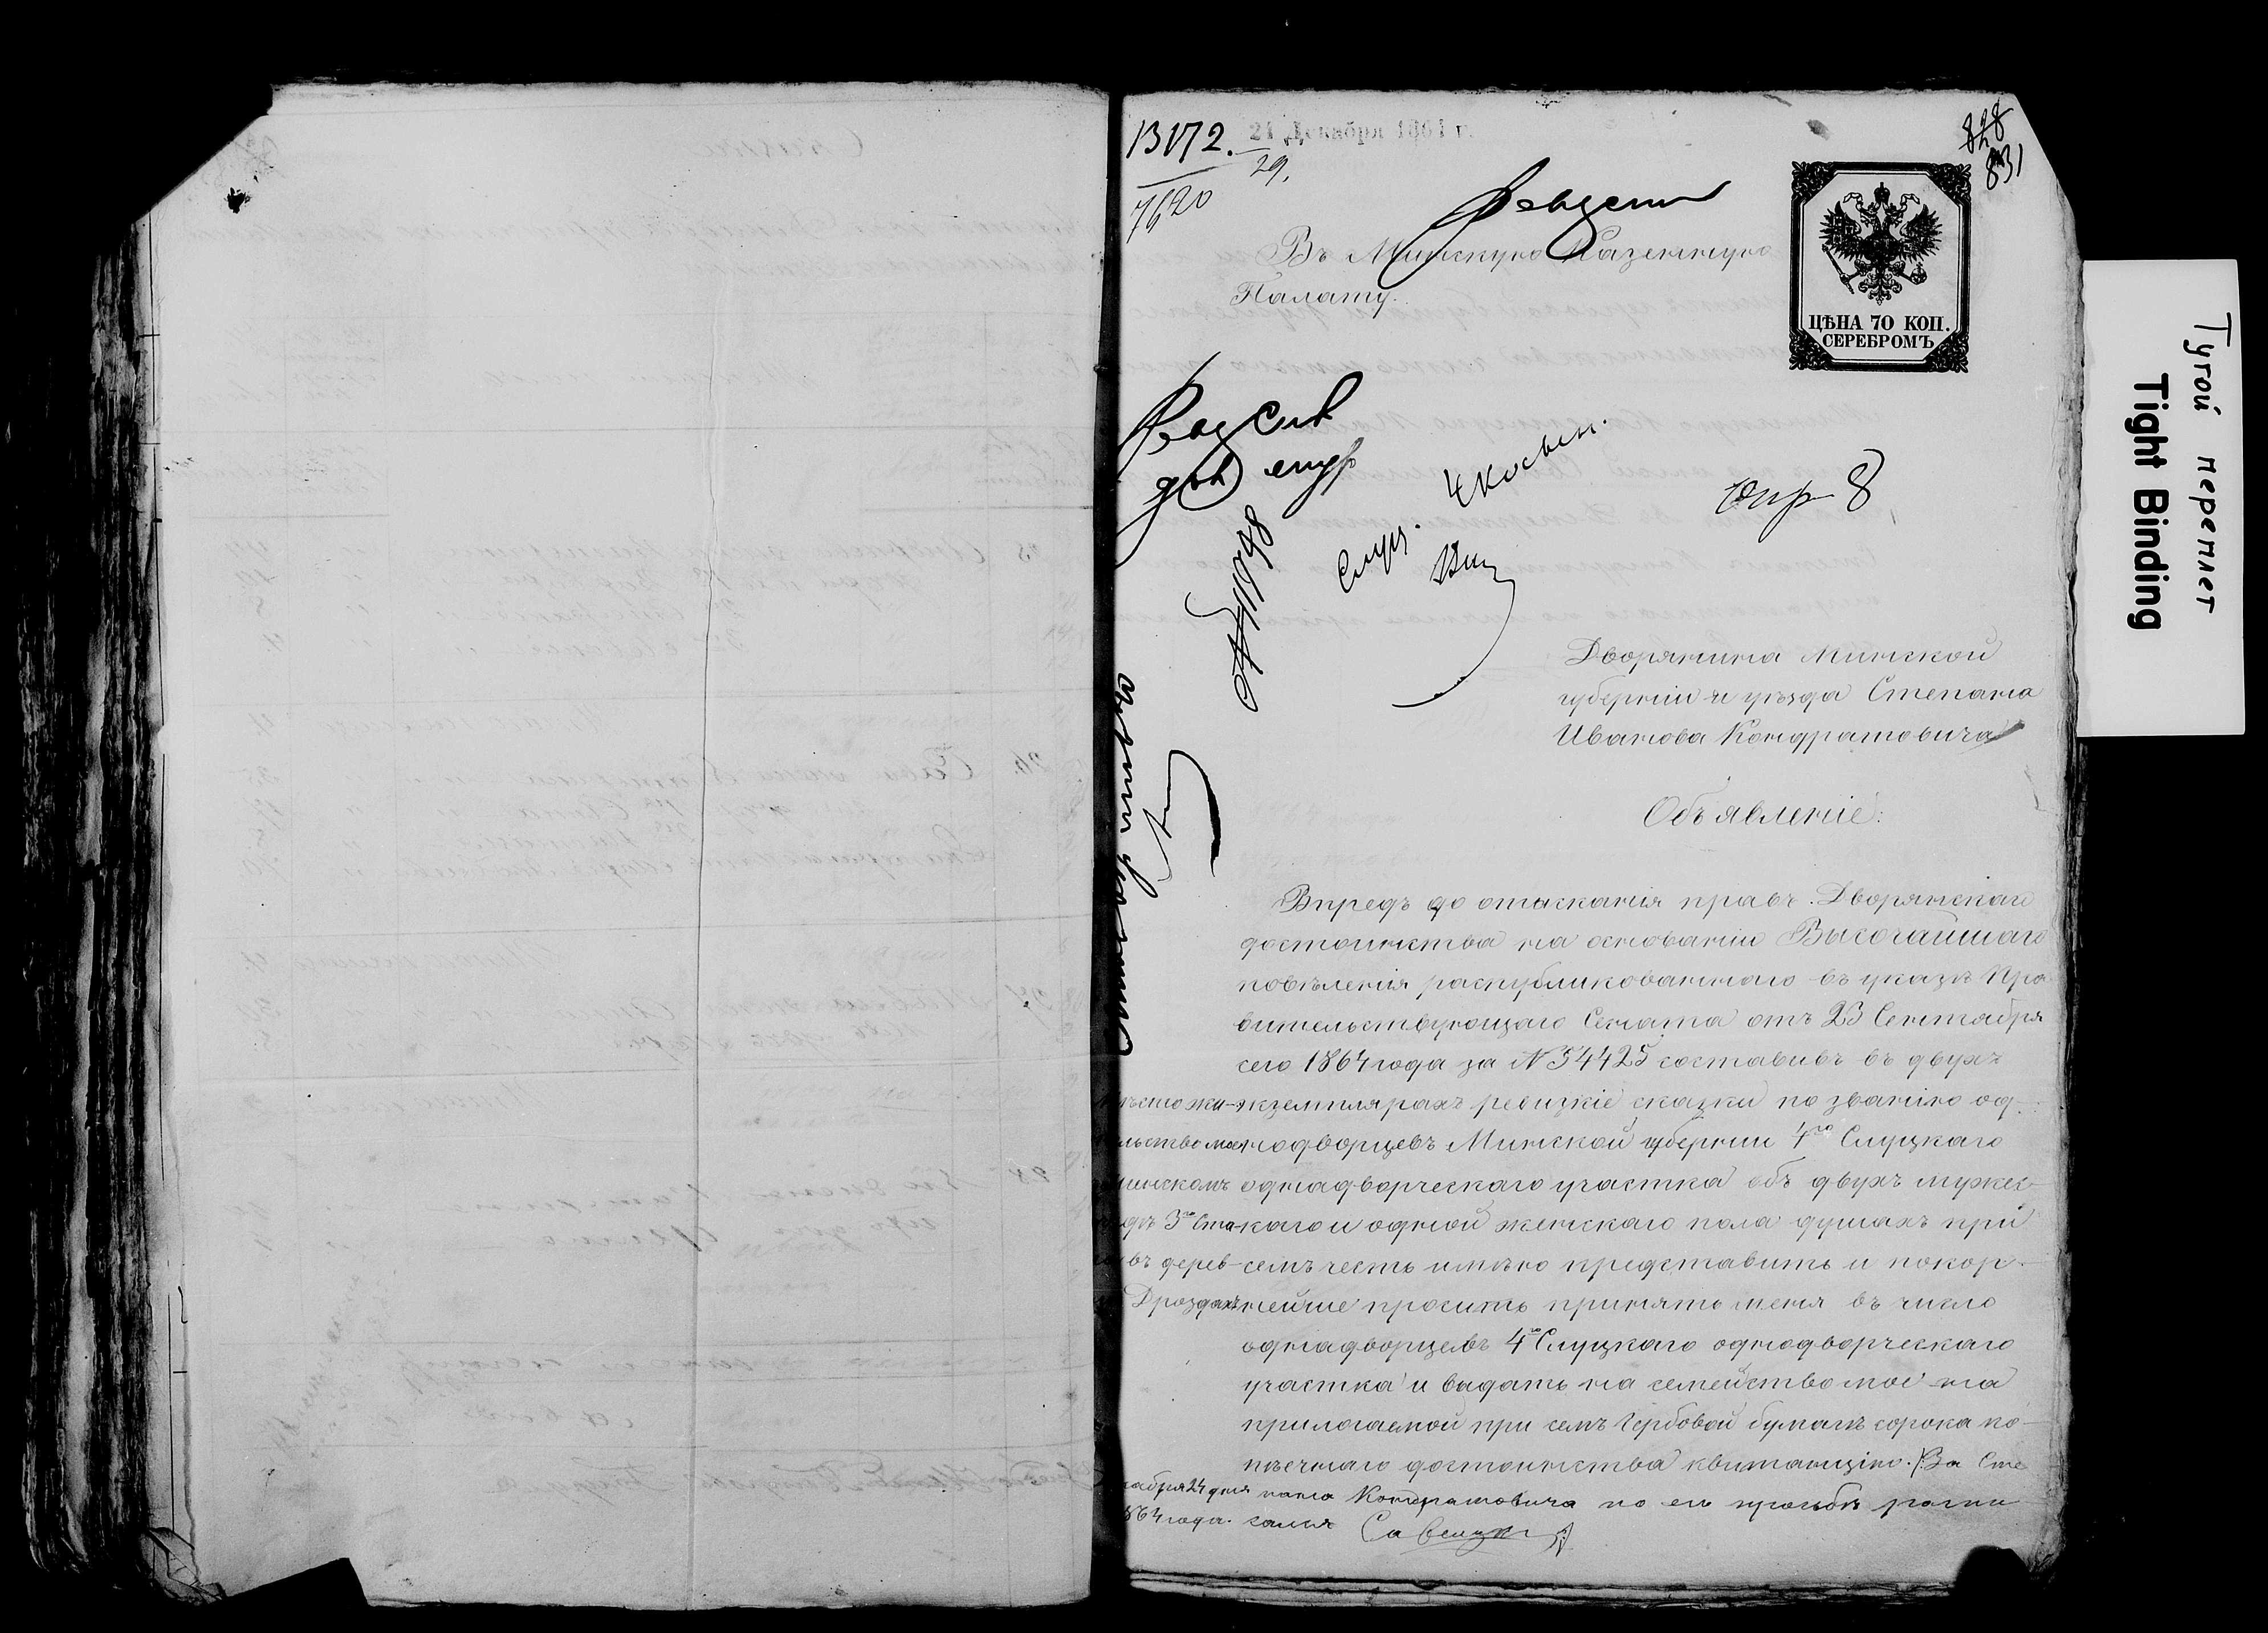 13172.
29.
7620
21 Декабря 1864 г.
828
831
Въ Минскую Казенную
Палату.
ЦѢНА 70 КОП.
СЕРЕБРОМЪ
Дворянина Минской
губерніи и уѣзда Степана
Иванова Кондратовича
Объявленіе:
Впредь до отысканія правъ Дворянскаго
достоинства на основаніи Высочайшаго
повѣленія распубликованнаго въ указѣ Пра
вительствующаго Сената отъ 23 Сентября
сего 1864 года за № 54425 составивъ въ двухъ
экземплярахъ ревизкіе сказки по званію од-
нодворцевъ Минской губерніи 4го Слуцкаго
однадворческаго участка объ двухъ мужес-
каго и одной женскаго пола душахъ при
семъ честь имѣю представить и покор-
нейше просить принять меня въ число
однадворцевъ 4го Слуцкаго однодворческаго
участка и выдать на семейство мое на
прилогаемой при семъ Гербовой бумагѣ сорока ко-
пѣечнаго достоинства квитанцію. За Сте
пана Кондратовича по его прозьбѣ роспи
сался Савицкій
мѣсто жи-
льство мое
минскомъ
дѣ 3го Ста-
въ дерев-
Дроздахъ
кабря 24 дня
864 года.
Тугой переплет
Tight Binding